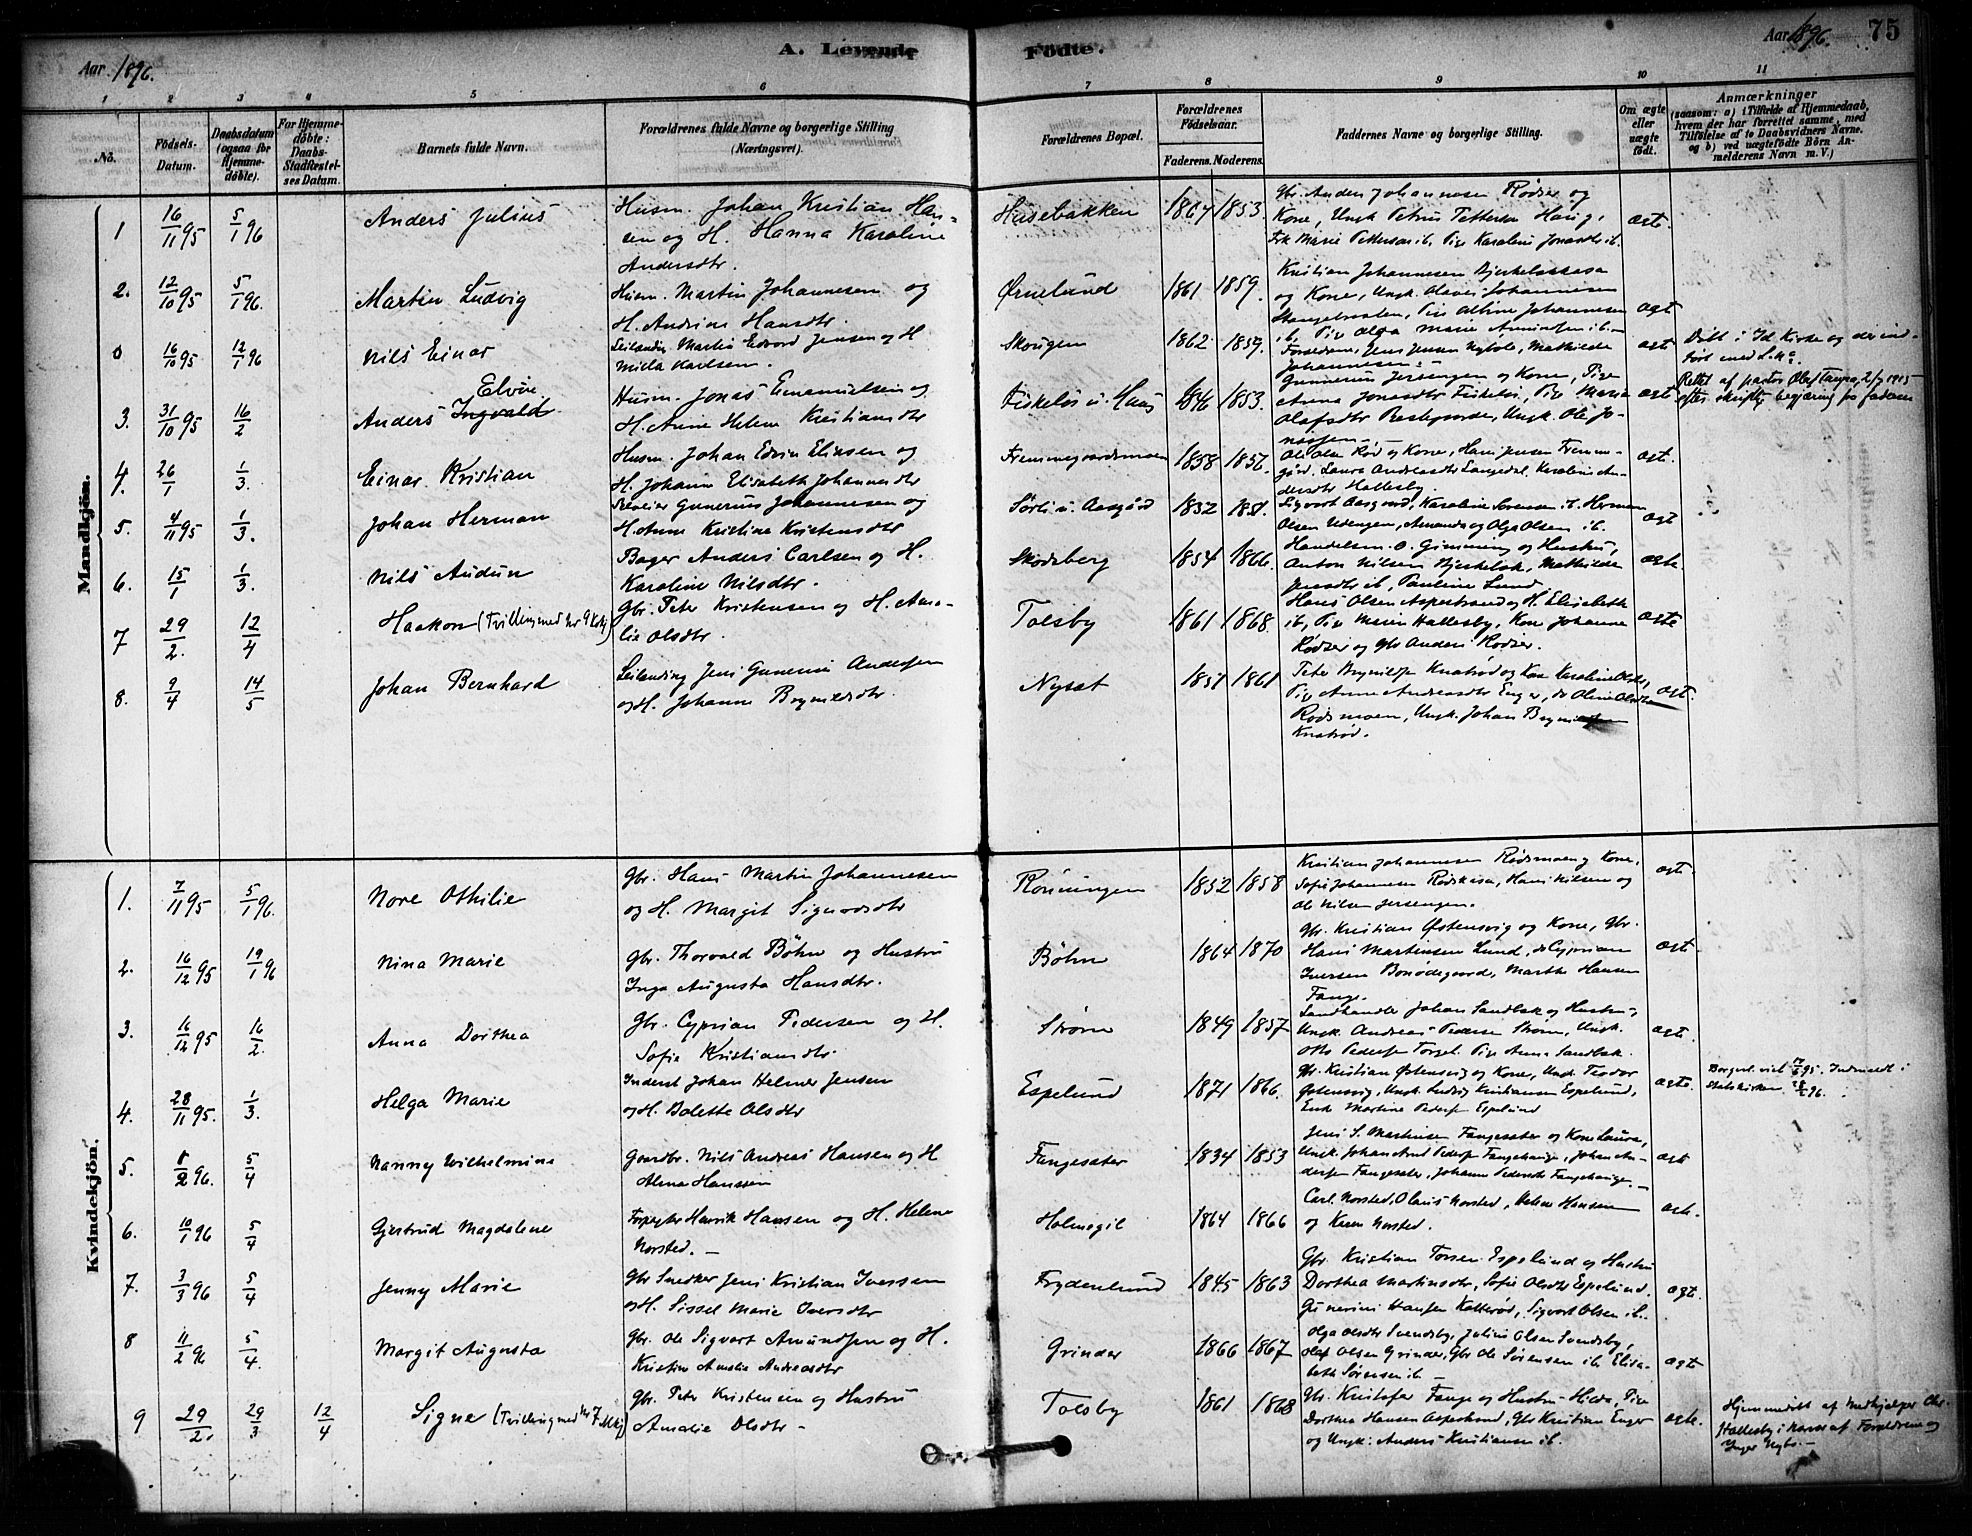 A. Levende Fødte.
Aar 1896.
Aar 1896. 75
1 2 3 4 5 6 7 8 9 10 11
No.
Födsels-Datum.
Daabsdatum (ogsaa for Hjemmedöbte).
For Hjemmedöbte: Daabs-Stadfæstelses Datum.
Barnets fulde Navn.
Forældrenes fulde Navne og borgerlige Stilling (Næringsvei).
Forældrenes Bopæl.
Forældrenes Födselsaar.
Faderens. Moderens.
Faddernes Navne og borgerlige Stilling.
Om ægte eller uægte födt.
Anmærkninger
(saasom: a) i Tilfælde af Hjemmedaab, hvem der har forrettet samme, med Tilföielse af to Daabsvidners Navne. og b) ved uægtefödte Börn Anmelderens Navn m. V.)
Mandkjön.
1 16/11 95 5/1 96 Anders Julius
Husm. Johan Kristian Hansen og H. Hanna Karoline Andersdtr.
Husebakken 1867 1853.
Gbr. Anders Johannesen Rødser og Kone, Ungk. Petrus Pettersen
ægte.
2. 12/10 95 5/1 96. Martin Ludvig
Husm. Martin Johannesen og H. Andrine Hansdtr.
Ørnelund 1861 1859.
Kristian Johannesen og Kone, Ungk. Johannesen
ægt
0 16/10 95 12/1 96 Nils Einar
Leilænding Martin Edvard Jensen og H. Milla Karlsen.
Skougen 1862 1859.
Jens Jensen Nybole, Mathilde Johannesen.
ægt
Døbt i Id Kirke og der indført med L. No.
3. 31/10 95 16/2 Anders Ingvald Elvin
Husm. Jonas Emanuelsen og H. Anne Helene Kristiansdtr
Fiskeløs u. 1846 1853.
Gunerius Jersengen og Kone, Pige Anna Jonasdtr Fiskeløs, Pige Maria Olafsdtr Ungk. Ole Jonassen
ægt
Rettet af pastor Olaf 2/7 1915 efter skriftlig begjæring fra faderen
4. 26/1 1/3. Einar Kristian
Husm. Johan Edvin Eliasen og H. Johanne Elisabeth Johannesdtr
1858 1856.
Ole Olsen Rød og Kone, Hans Jensen
ægt.
5. 4/11 95 1/3. Johan Herman
Gunerius Johannesen og H. Anne Kristine Kristensdtr
Sørli u. Aasgård 1852 1851.
Sigvart Aasgaard, Karoline Sørensen ib. Herman Olsen Udengen, Amanda og Olga Olsen ib.
ægt
6. 15/1 1/3. Nils Audun
Bager Anders Carlsen og H. Karoline Nilsdtr.
Skodsberg 1854 1866.
Handelsm. O. Gimming og Hustru, Anton Nilsen Bjerkelak, Mathilde ib, Pauline Lund.
ægte.
7 29/2. 12/4 Haakon (Tvilling med No 9 Kvkj)
Gbr. Peter Kristensen og H. Amalie Olsdtr.
Tolsby 1861 1868.
Hans Olsen Aspestrand og H. Elisabeth ib, Pige Maren Hallesby, Kone Johanne Rødser og Gbr Anders Rødser.
ægte
8. 9/4 14/5 Johan Bernhard
Leilænding Jens Gunerius Andersen og H. Johanne Brynildsdtr
Nysæt 1851 1861
Peter Brynildsen Knatrød og Kone Karoline Olsdtr, Pige Anne Andreasdtr Enger, do Oline Olsdtr Rødsmoen, Ungk. Johan Knatrød.
ægt.
Kvindekjön.
1. 7/11 95 5/1 96. Nore Othilie
Gbr. Hans Martin Johannesen og H. Margit Sigvardsdtr
Rønningen 1852 1858
Kristian Johannesen Rødsmoen og Kone, Sofie Johannesen, Hans Nilsen og Ole Nilsen Jersengen.
ægt.
2. 16/12 95 19/1 96 Nina Marie
Gbr. Thorvald Böhn og Hustru Inga Augusta Hansdtr.
Böhn 1864 1870
Gbr. Kristian Østensvig og Kone, Gbr. Hans Martinsen Lund, do Cyprian Iversen Bonødegaard, Marthe Hansen Fange.
ægt.
3. 16/12 95 16/2. Anna Dorthea
Gbr. Cyprian Pedersen og H. Sofie Kristiansdtr.
Strøm 1849 1857
Landhandler Johan Sandbæk og Hustru, Ungk. Andreas Pedersen Strøm, Ungk. Otto Pedersen Torgel. Pige Anna Sandbæk.
ægt.
4. 28/11 95. 1/3. Helga Marie
Inderst Johan Helmer Jensen og H. Bolette Olsdtr
Espelund 1871 1866.
Gbr. Kristian Østensvig og Kone, Ungk. Teodor Østensvig, Ungk. Ludvig Kristiansen Espelund, Enke Martine Pedersen Espelund
ægte.
Borgerl. viet 95. Indmeldt i Statskirken 96.
5. 8/2 96. 5/4 Nanny Wilhelmine
Gaardbr. Nils Andreas Hansen og H. Alma Hanssen
Fangesæter 1834 1853
Jens S. Martinsen Fangesæter og Kone Laura, Ungk. Johan Arnt Pedersen, Johan Andersen Fangesæter, Johanne Pedersdtr
ægt
6. 10/1 96 5/4 Gjertrud Magdalene
Forpagter Henrik Hansen og H. Helene Norsted. —
Holmegil 1864 1866
Carl Norsted, Olaus Norsted, Helene Hansen og Karen Norsted.
ægte.
7. 3/3 96 5/4 Jenny Marie
Gbr Snedker Jens Kristian Iversen og H. Sissel Marie Iversdtr
Frydenlund 1845 1863
Gbr. Kristian Torsen Espelund og Hustru Dorthea Martinsdtr, Sofie Olsdtr Espelund. Gunerius Hansen Katterød, Sigvart Olsen ib.
ægt.
8 11/2 96 5/4. Margit Augusta
Gbr. Ole Sigvart Amundsen og H. Kristine Amalie Andreasdtr
Grinder 1866 1867
Olga Olsdtr Svendsby, Julius Olsen Svendsby, Olaf Olsen Grinder, Gbr Ole Sørensen ib. Elisabeth Sørensen ib —
ægte
9 29/2. 29/3 12/4 Signe (Tvilling med No 7 Mkj)
Gbr. Peter Kristensen og Hustru Amalie Olsdtr —
Tolsby 1861 1868
Gbr. Kristofer Fange og Hustru Hilda, Pige Dorthea Hansen Aspestrand, Gbr Kristian Enger og Ungk. Anders Kristiansen ib.
ægte.
Hjemmedøbt af Medhjælper Chr. Hallesby i Nærvær af Forældrene og Inger Nybo. —